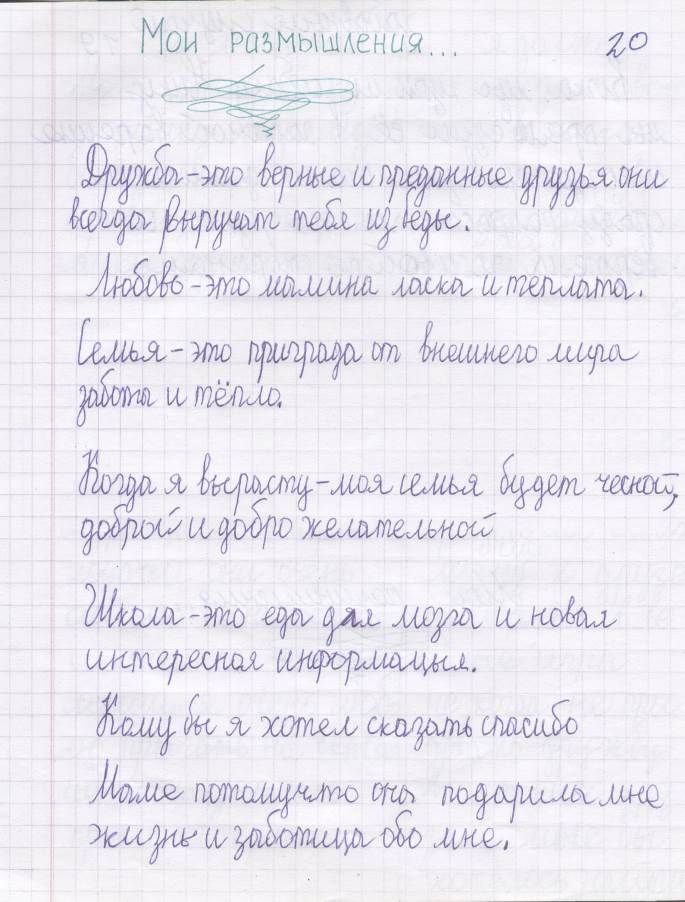 Мои размышления...
20
Дружба-это верные и преданные друзья они
всегда выручат тебя из беды.
Любовь-это мамина ласка и теплата.
Семья-это приграда от внешнего мира
заботы и тёпло.
Когда я вырасту-моя семья будет чесной,
доброй и добро желательной
Школа-это еда для мозга и новая
интересная информацыя.
Кому бы я хотел сказать спасибо
Маме потомучто она подарила мне
жизнь и заботица обо мне.